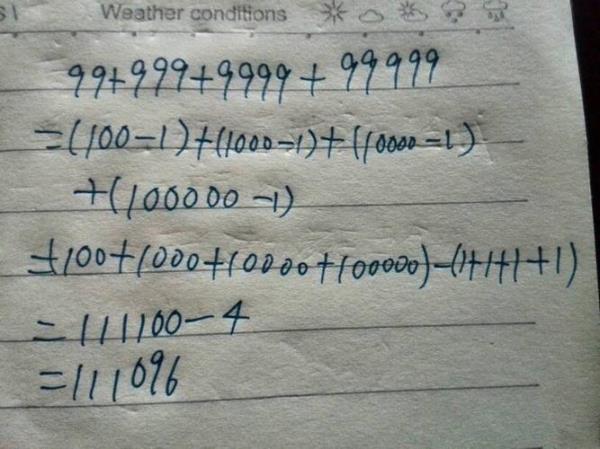 Weather conditions
99+999+9999+99999
=(100-1)+(1000-1)+(10000-1)
+(100000-1)
=(100+1000+10000+100000)-(1+1+1+1)
=111100-4
=111096